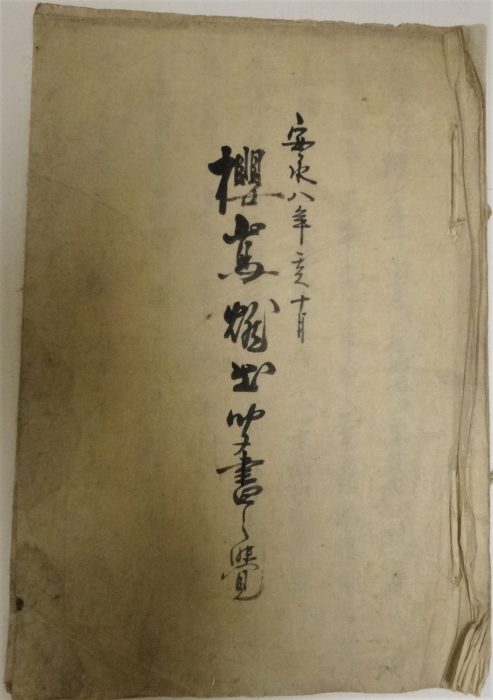 安永八年亥十月
櫻嶌燃出聞書之覺